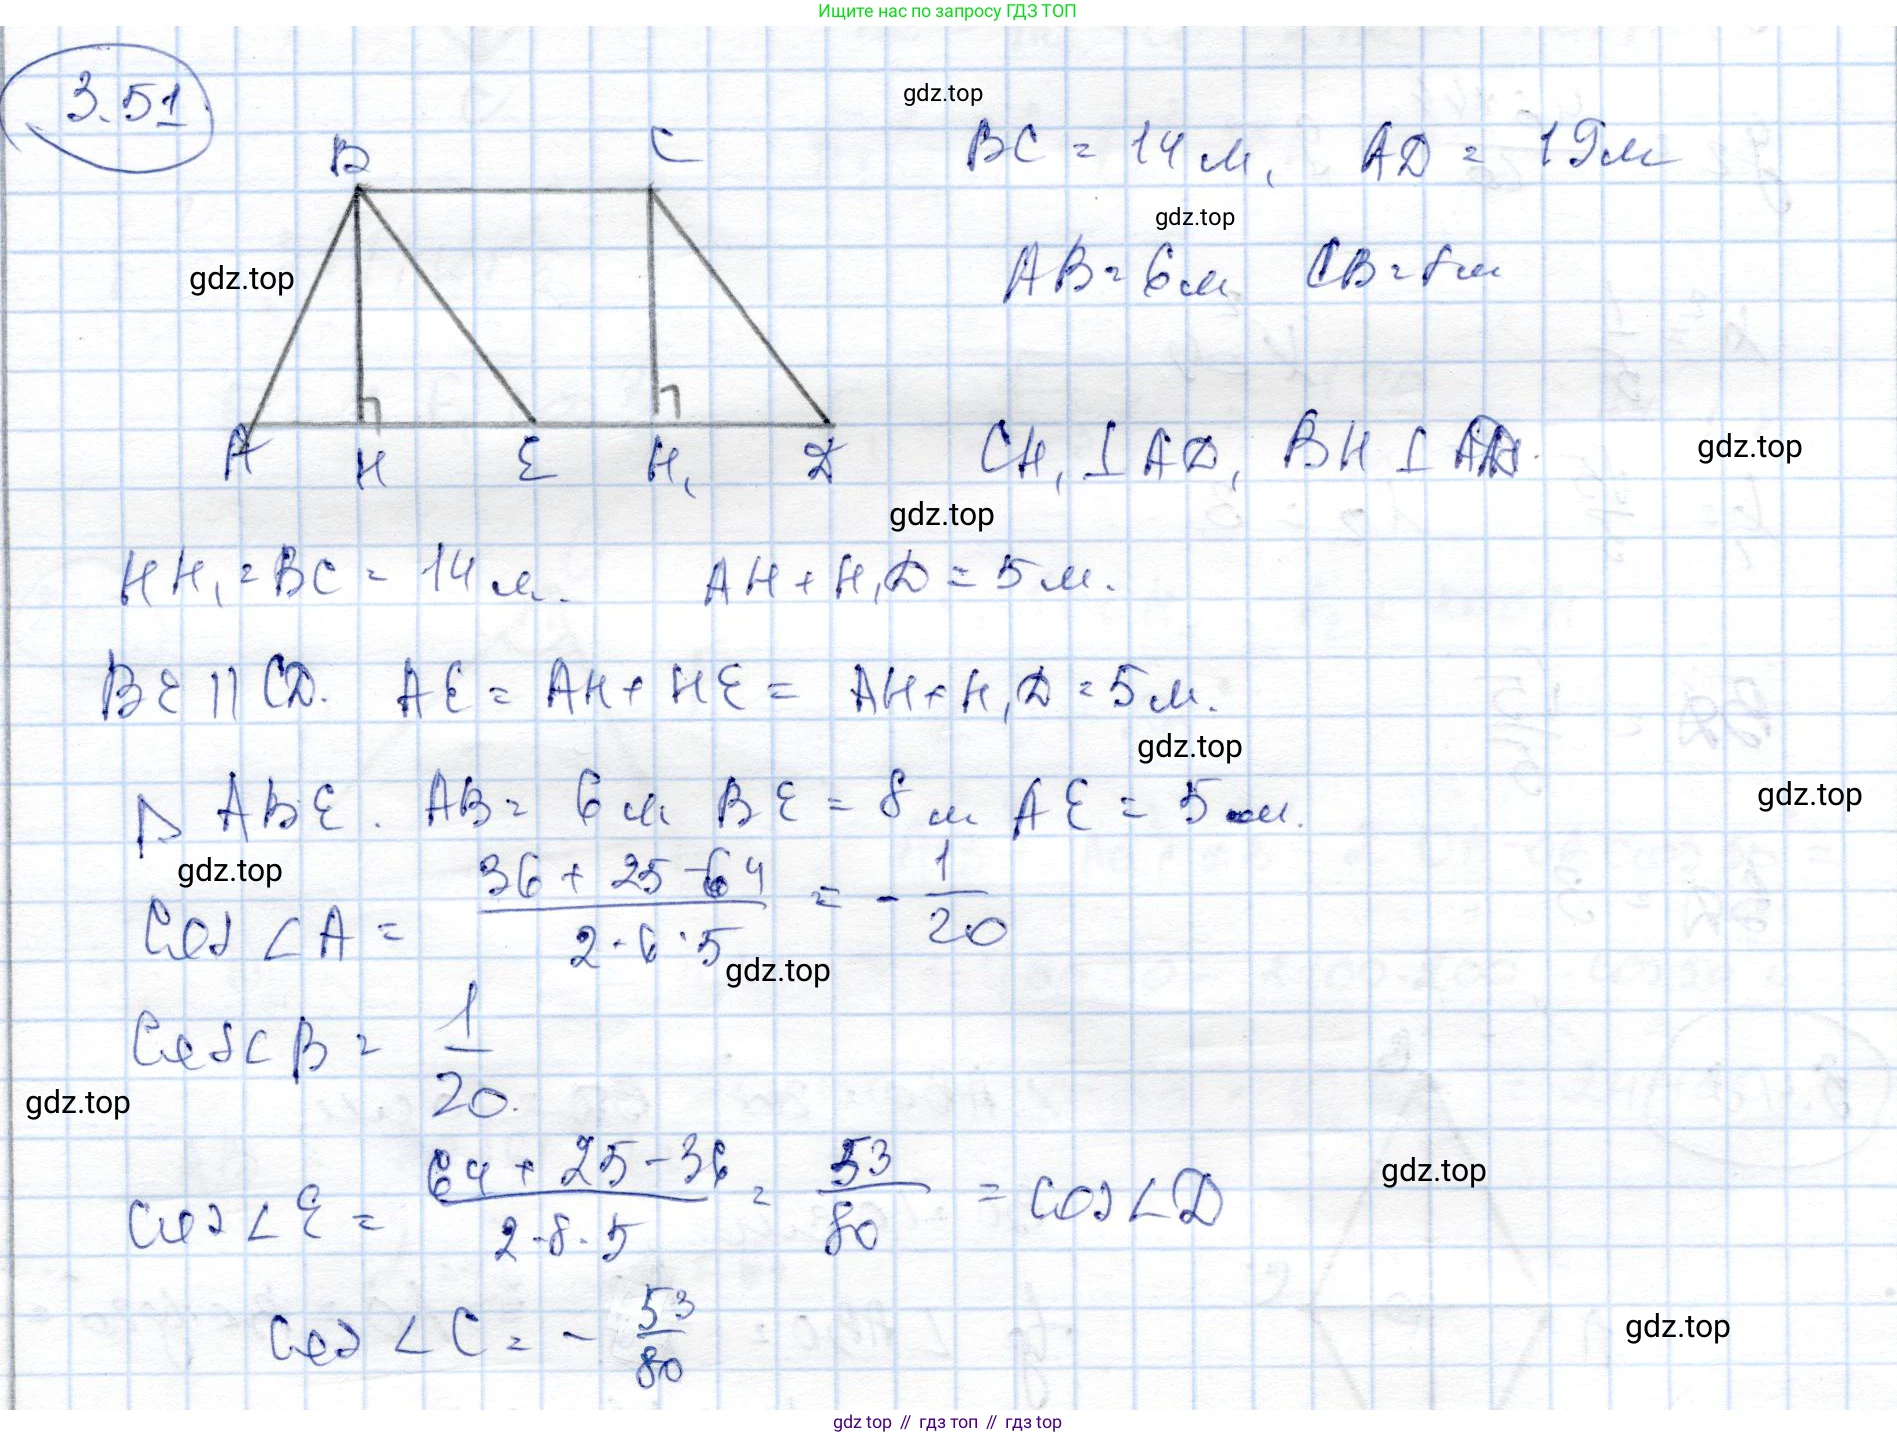 Ищите нас по запросу ГДЗ ТОП
3.51
gdz.top
B C
BC = 14 м, AD = 19 м
gdz.top
AB = 6 м CB = 8 м
gdz.top
A H E H₁ D
CH₁ ⊥ AD, BH ⊥ AD.
gdz.top
gdz.top
HH₁ = BC = 14 м. AH + H₁D = 5 м.
BE || CD. AE = AH + HE = AH + H₁D = 5 м.
gdz.top
gdz.top
△ ABE. AB = 6 м BE = 8 м AE = 5 м.
gdz.top
cos ∠A = (36 + 25 - 64)/(2·6·5) = -1/20
gdz.top
cos ∠B = 1/20.
gdz.top
cos ∠E = (64 + 25 - 36)/(2·8·5) = 53/80 = cos ∠D
gdz.top
cos ∠C = -53/80
gdz.top
gdz top // гдз топ // гдз top